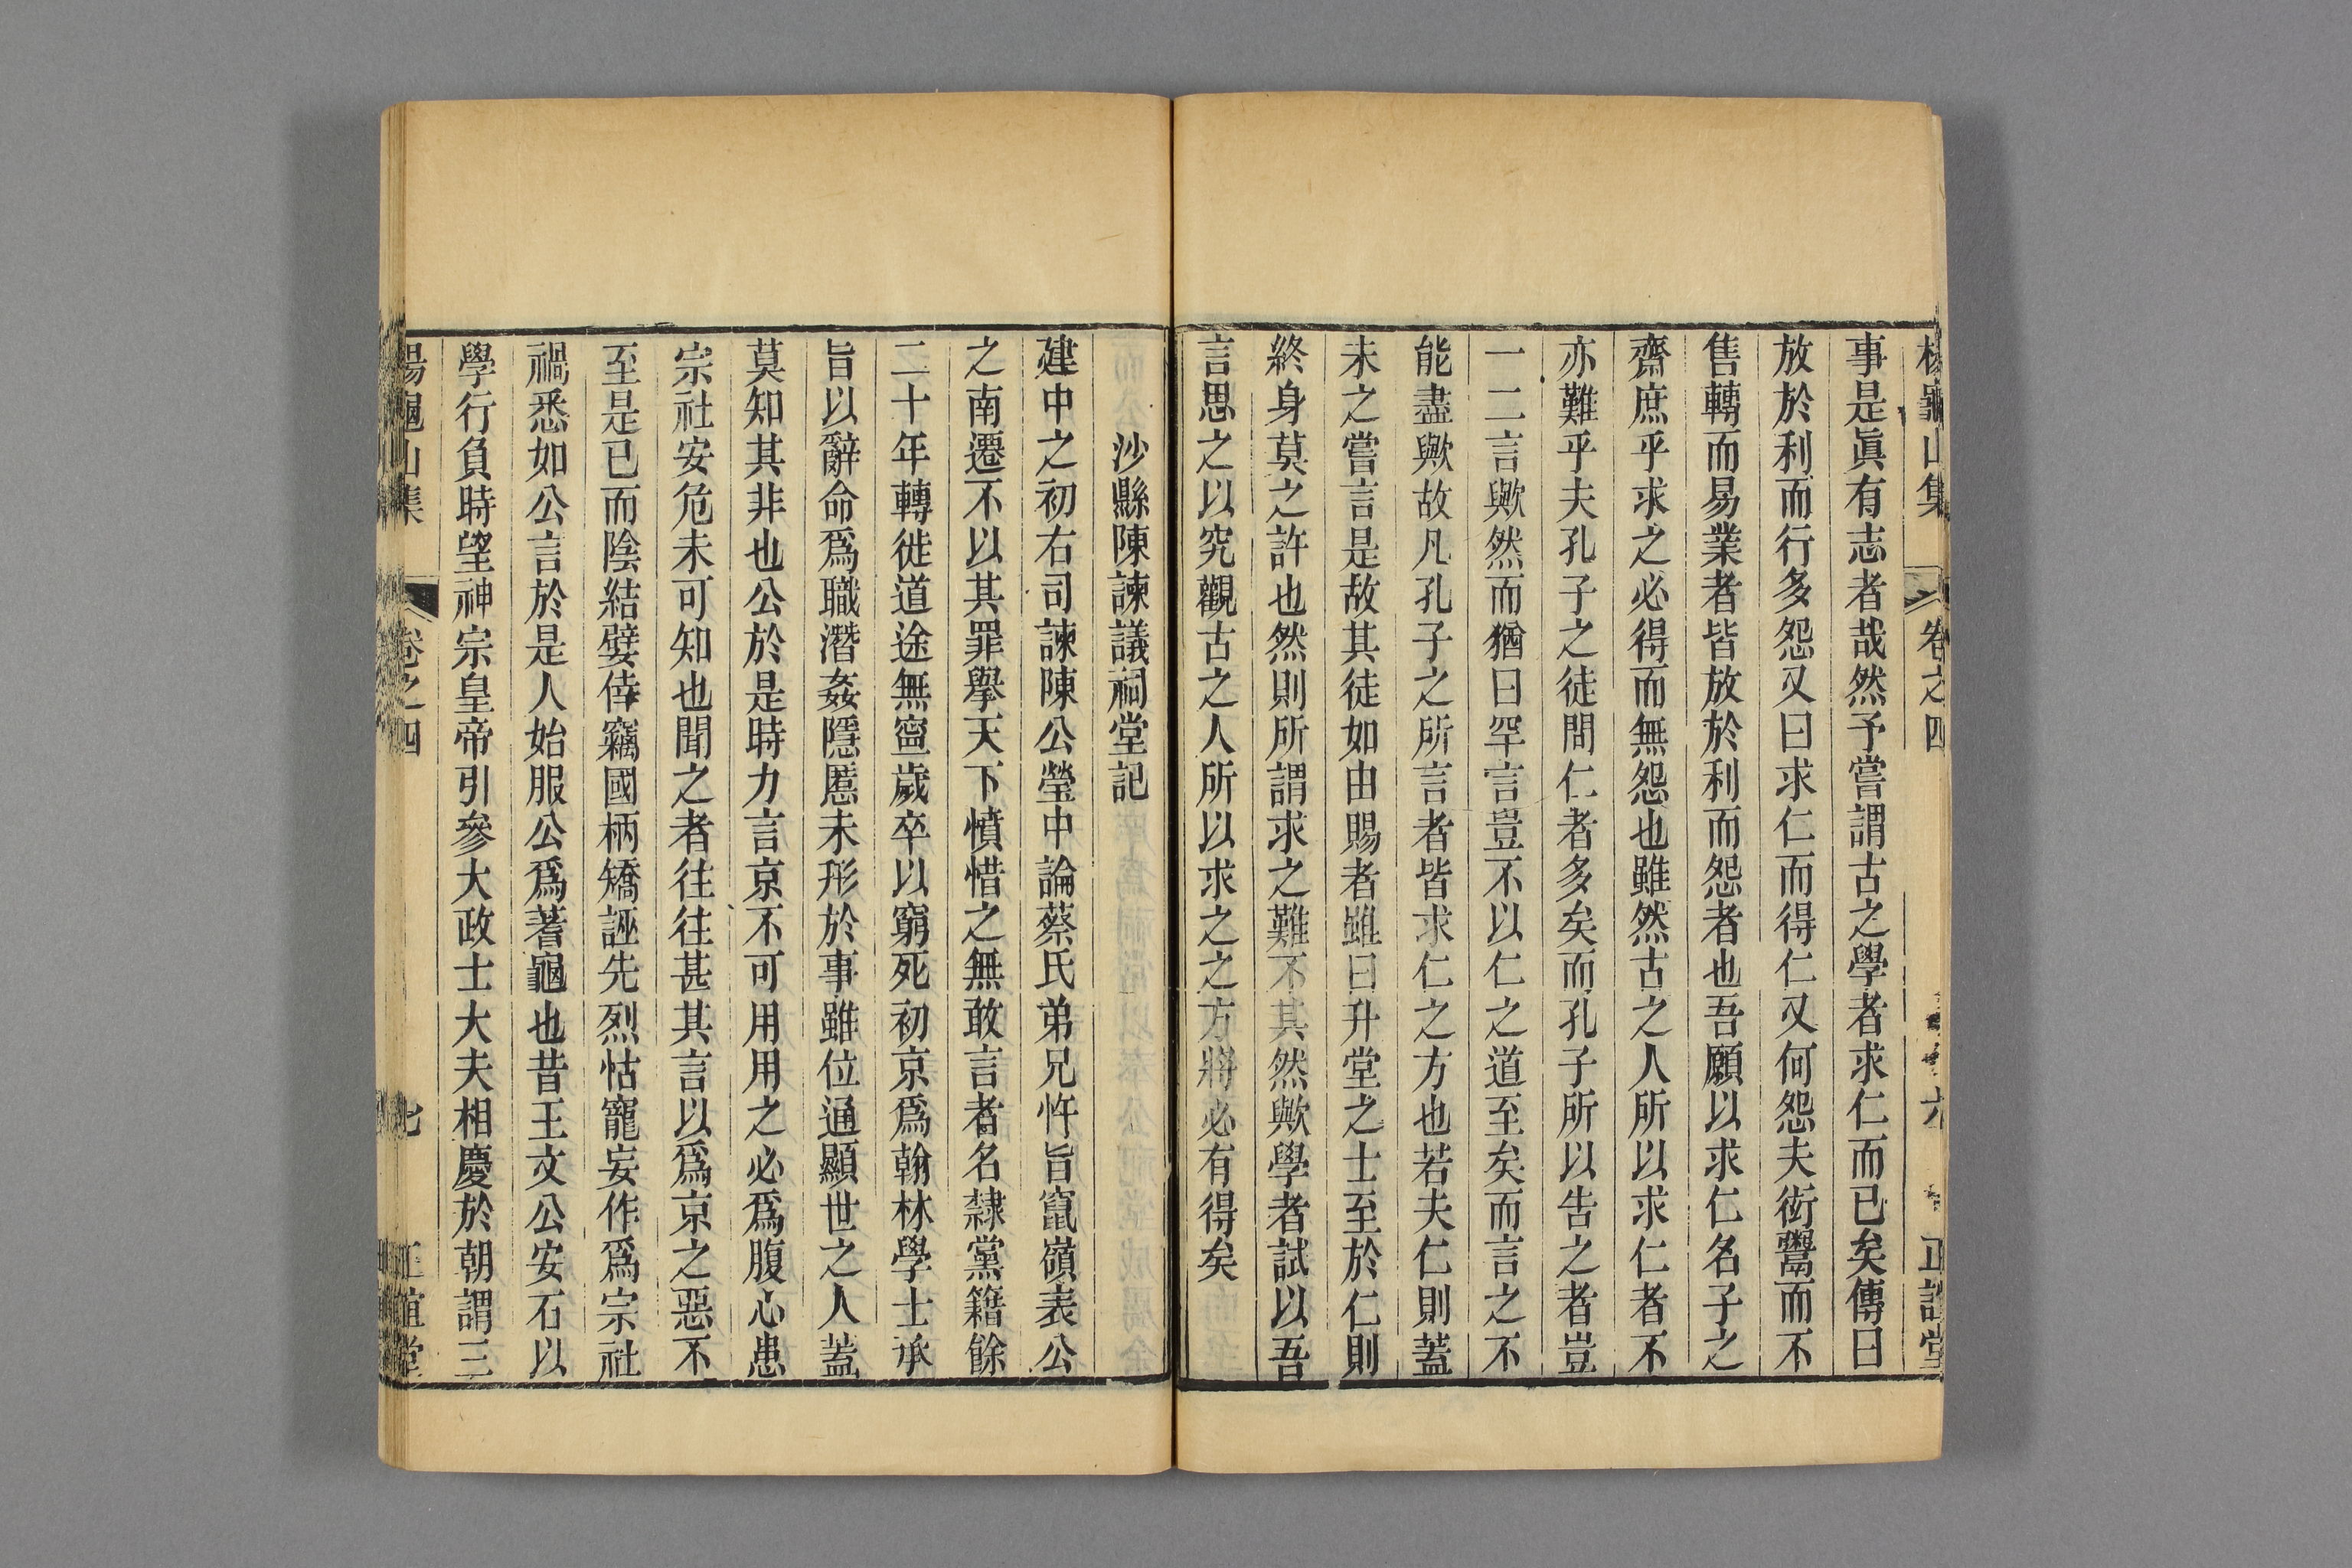 楊龜山集 卷之四 六 正誼堂
事是眞有志者哉然予嘗謂古之學者求仁而已矣傳曰
放於利而行多怨又曰求仁而得仁又何怨夫衒鬻而不
售轉而易業者皆放於利而怨者也吾願以求仁名子之
齋庶乎求之必得而無怨也雖然古之人所以求仁者不
亦難乎夫孔子之徒問仁者多矣而孔子所以告之者豈
一二言歟然而猶曰罕言豈不以仁之道至矣而言之不
能盡歟故凡孔子之所言者皆求仁之方也若夫仁則蓋
未之嘗言是故其徒如由賜者雖曰升堂之士至於仁則
終身莫之許也然則所謂求之難不其然歟學者試以吾
言思之以究觀古之人所以求之之方將必有得矣
沙縣陳諫議祠堂記
建中之初右司諫陳公瑩中論蔡氏弟兄忤旨竄嶺表公
之南遷不以其罪擧天下憤惜之無敢言者名隸黨籍餘
二十年轉徙道途無寍歲卒以窮死初京爲翰林學士承
旨以辭命爲職潛姦隱慝未形於事雖位通顯世之人蓋
莫知其非也公於是時力言京不可用用之必爲腹心患
宗社安危未可知也聞之者往往甚其言以爲京之惡不
至是已而陰結嬖倖竊國柄矯誣先烈怙寵妄作爲宗社
禍悉如公言於是人始服公爲蓍龜也昔王文公安石以
學行負時望神宗皇帝引參大政士大夫相慶於朝謂三
楊龜山集 卷之四 七 正誼堂